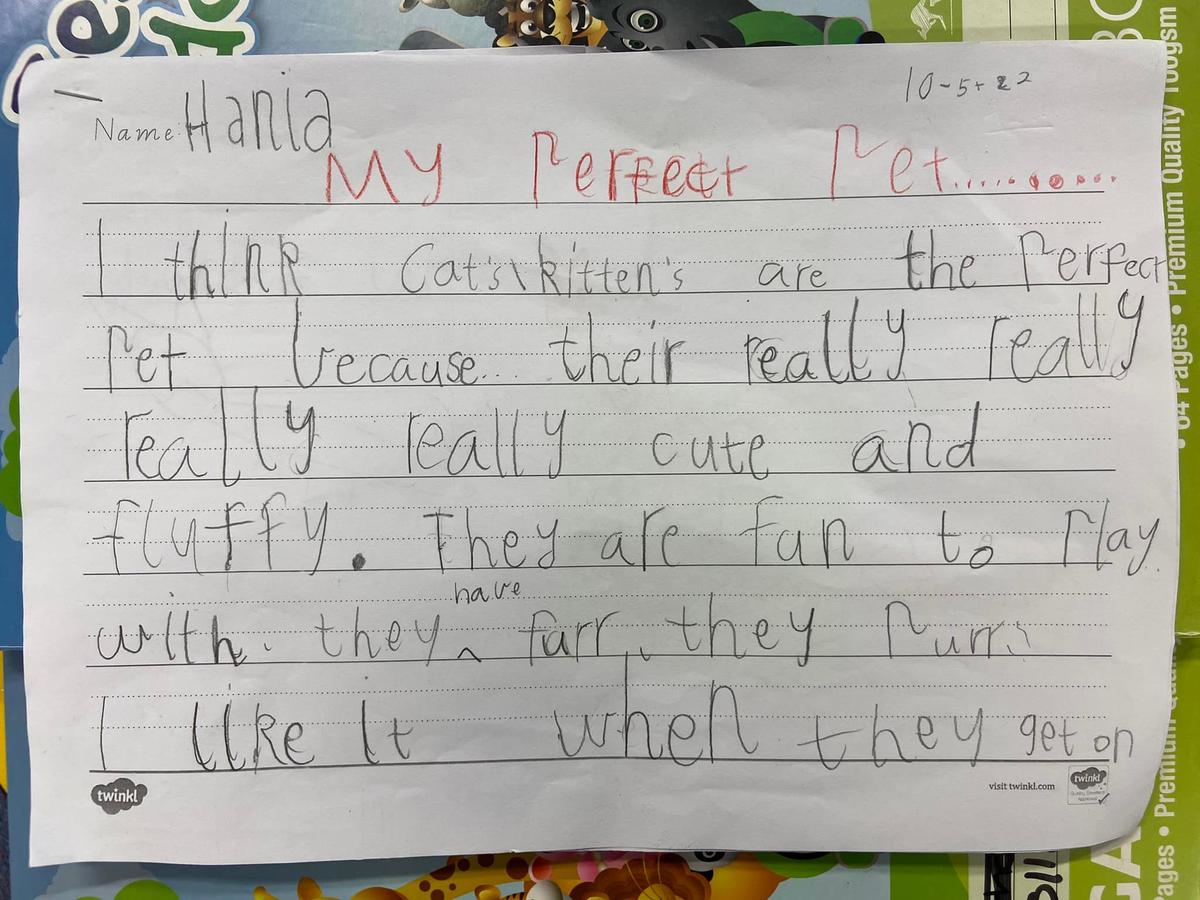 10-5-22
Name: Hania
My Perfect Pet..........
I think Cat's\kitten's are the Perfect
Pet because... their really really
really really cute and
fluffy. They are fun to Play
have
with. they ^ farr. they Purr.
I like It when they get on
twinkl
visit twinkl.com
twinkl
64 Pages • Premium Quality 100gsm
Pages • Premium